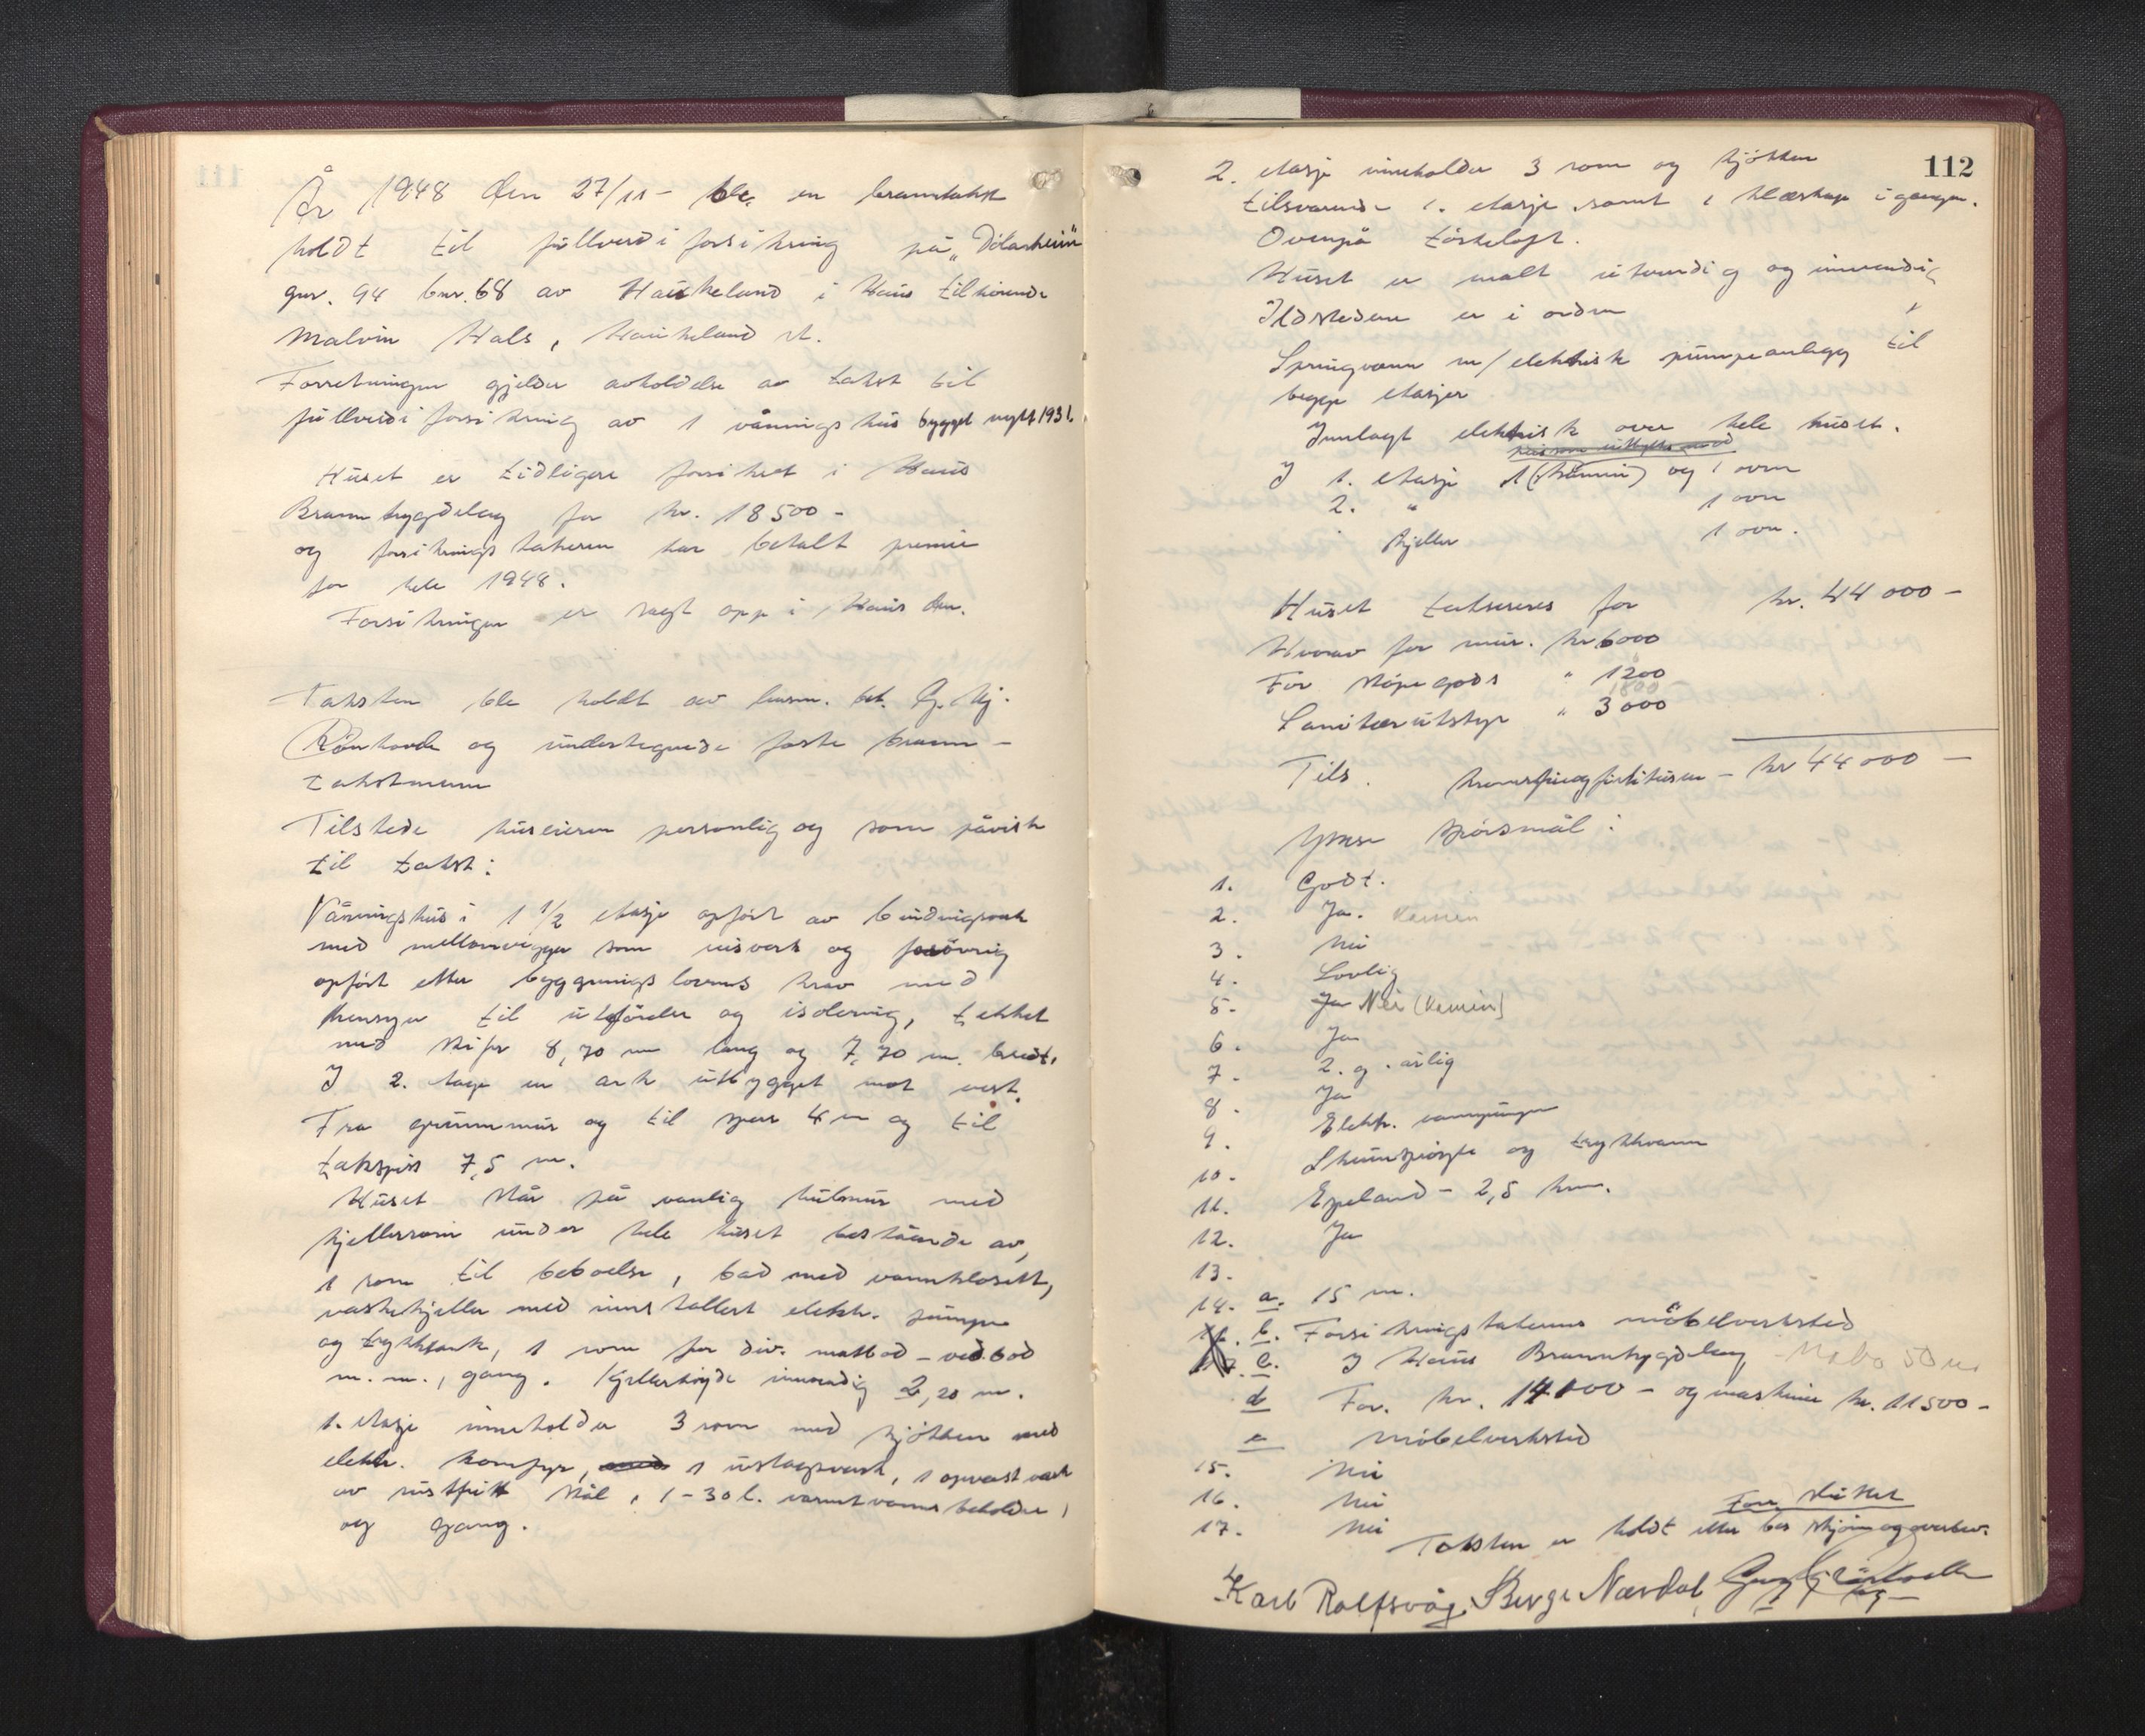 År 1948 den 27/11 - ble en branntakst
holdt til fullverdiforsikring på "Solarheim"
gnr. 94 bnr. 68 av Haukeland i Haus tilhørende
Malvin Hals, Haukeland st.
Forretningen gjelder avholdelse av takst til
fullverdiforsikring av 1 våningshus bygget nytt 1931.
Huset er tidligere forsikret i Haus
Brannbygdelag for kr. 18500 -
og forsikringstakeren har betalt premie
for hele 1948.
Forsikringen er sagt opp i Haus
Taksten ble holdt av lensm. bet.
og undertegnede faste brann-
takstmenn
Tilstede huseieren personlig og som påviste
til takst:
Våningshus i 1 1/2 etasje opført av bindingsverk
med mellomvegger som reisverk og forøvrig
opført etter bygningslovens krav med
hensyn til utførelse og isolering, tekket
med skifer 8,70 m lang og 7,70 m. bredt.
I 2. etage en ark utbygget mot vest.
Fra grunnmur og til sper 4 m og til
takspiss 7,5 m.
Huset står på vanlig hulmur med
kjellerrom under hele huset bestående av,
1 rom til beboelse, bad med vannklosett,
vaskekjeller med innstallert elektr. pumpe
og trykktank, 1 rom for div. matbod - vedbod
m. m., gang. Kjellerhøyde innvendig 2,20 m.
1. etasje inneholder 3 rom med kjøkken med
elektr. komfyr, med 1 utslagsvask, 1 oppvaskvask
av rustfritt stål, 1-30 l. varmtvannsbeholder,
og gang.
112
2. etasje inneholder 3 rom og kjøkken
tilsvarende 1. etasje samt 1 klæskap i gangen.
Ovenpå tørkeloft.
Huset er malt utvendig og innvendig
Ildstedene er i orden
Springvann m/elektrisk pumpeanlegg til
begge etasjer
Innlagt elektrisk over hele huset.
I 1. etasje 1 (kamin) og 1 ovn
2. " 1 ovn
Kjeller 1 ovn.
Huset takseres for kr. 44 000 -
Hvorav for mur. kr 6000
For støpegods " 1200
1800
Sanitærutstyr " 3000
Tils. kronerførtifiretusen - kr 44 000 -
Ymse spørsmål:
1. Godt.
2. Ja. Kamin
3. Nei
4. Lovlig
5. Ja Nei (Kamin)
6. Ja
7. 2. g. årlig
8. Ja
9. Elektr. vannpumpe
10. Skumsprøyte og trykkvann
11. Espeland - 2,5 km.
12. Ja
13.
14. a. 15 m.
b. Forsikringstakerens møbelverksted
c. I Haus Brannbygdelag Nabo 50 m
d For. kr. 14000 - og maskiner kr. 11500 -
e Møbelverksted
15. Nei
16. Nei
17. Nei
Taksten er holdt etter beste skjønn og overbev.
Karl Rolfsvåg. Børge Nærdal,